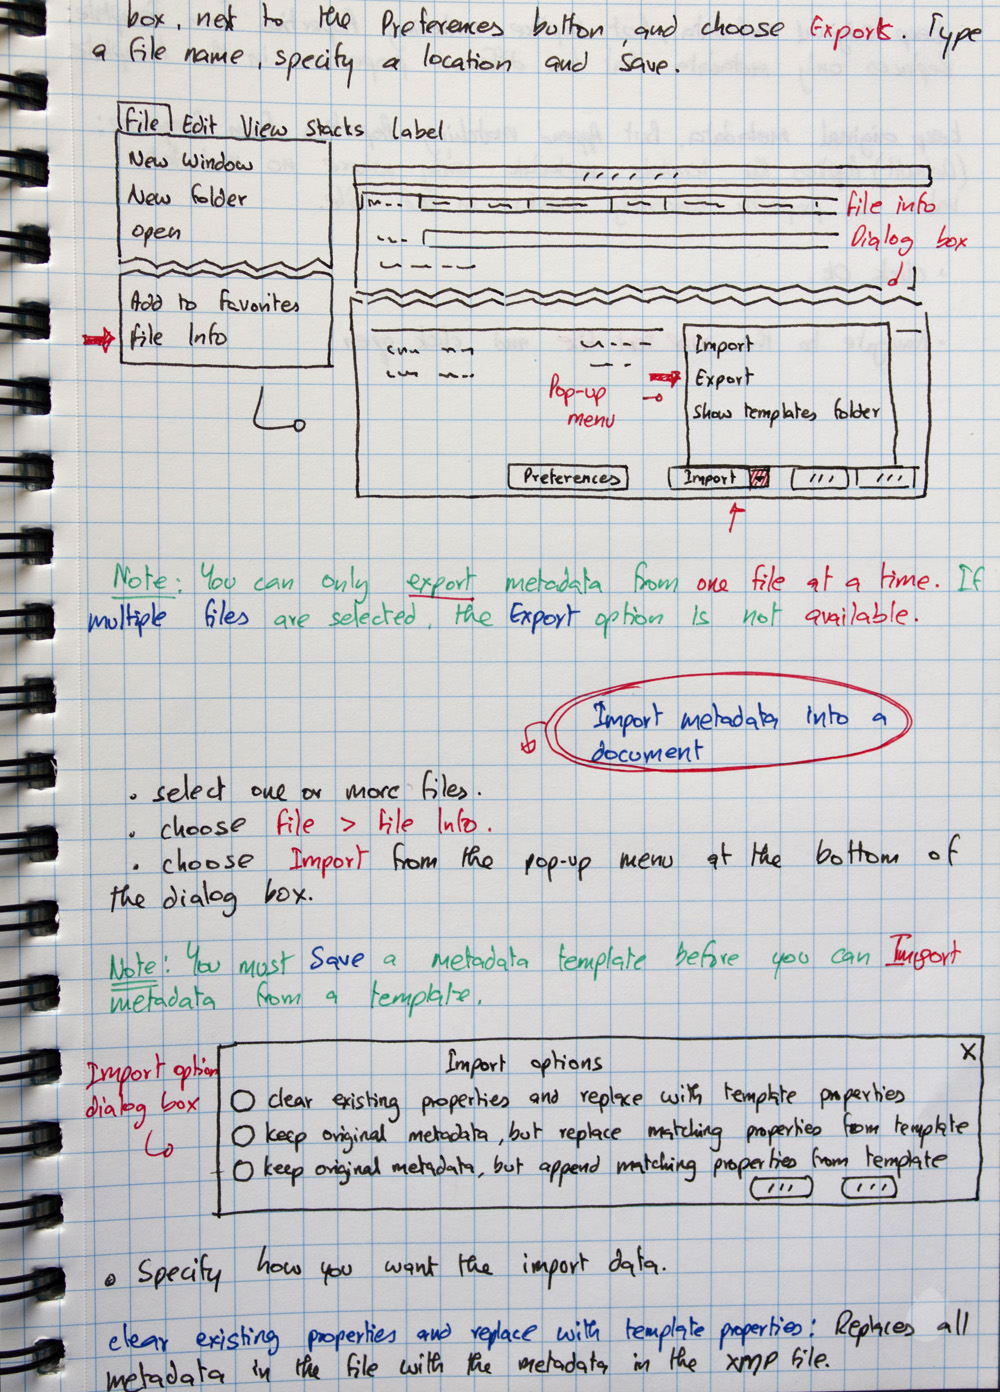 box, next to the Preferences button, and choose Exports. Type
a file name, specify a location and save.
File Edit View Stacks Label
New Window
New Folder
open
Add to Favorites
File Info
File info
Dialog box
Import
Export
Show templates folder
Pop-up
menu
Preferences
Import
Note: You can only export metadata from one file at a time. If
multiple files are selected, the Export option is not available.
Import metadata into a
document
• select one or more files.
• choose File > File Info.
• choose Import from the pop-up menu at the bottom of
the dialog box.
Note: You must Save a metadata template before you can Import
metadata from a template.
Import option
dialog box
Import options X
clear existing properties and replace with template properties
keep original metadata, but replace matching properties from template
keep original metadata, but append matching properties from template
• Specify how you want the import data.
clear existing properties and replace with template properties: Replaces all
metadata in the file with the metadata in the XMP file.